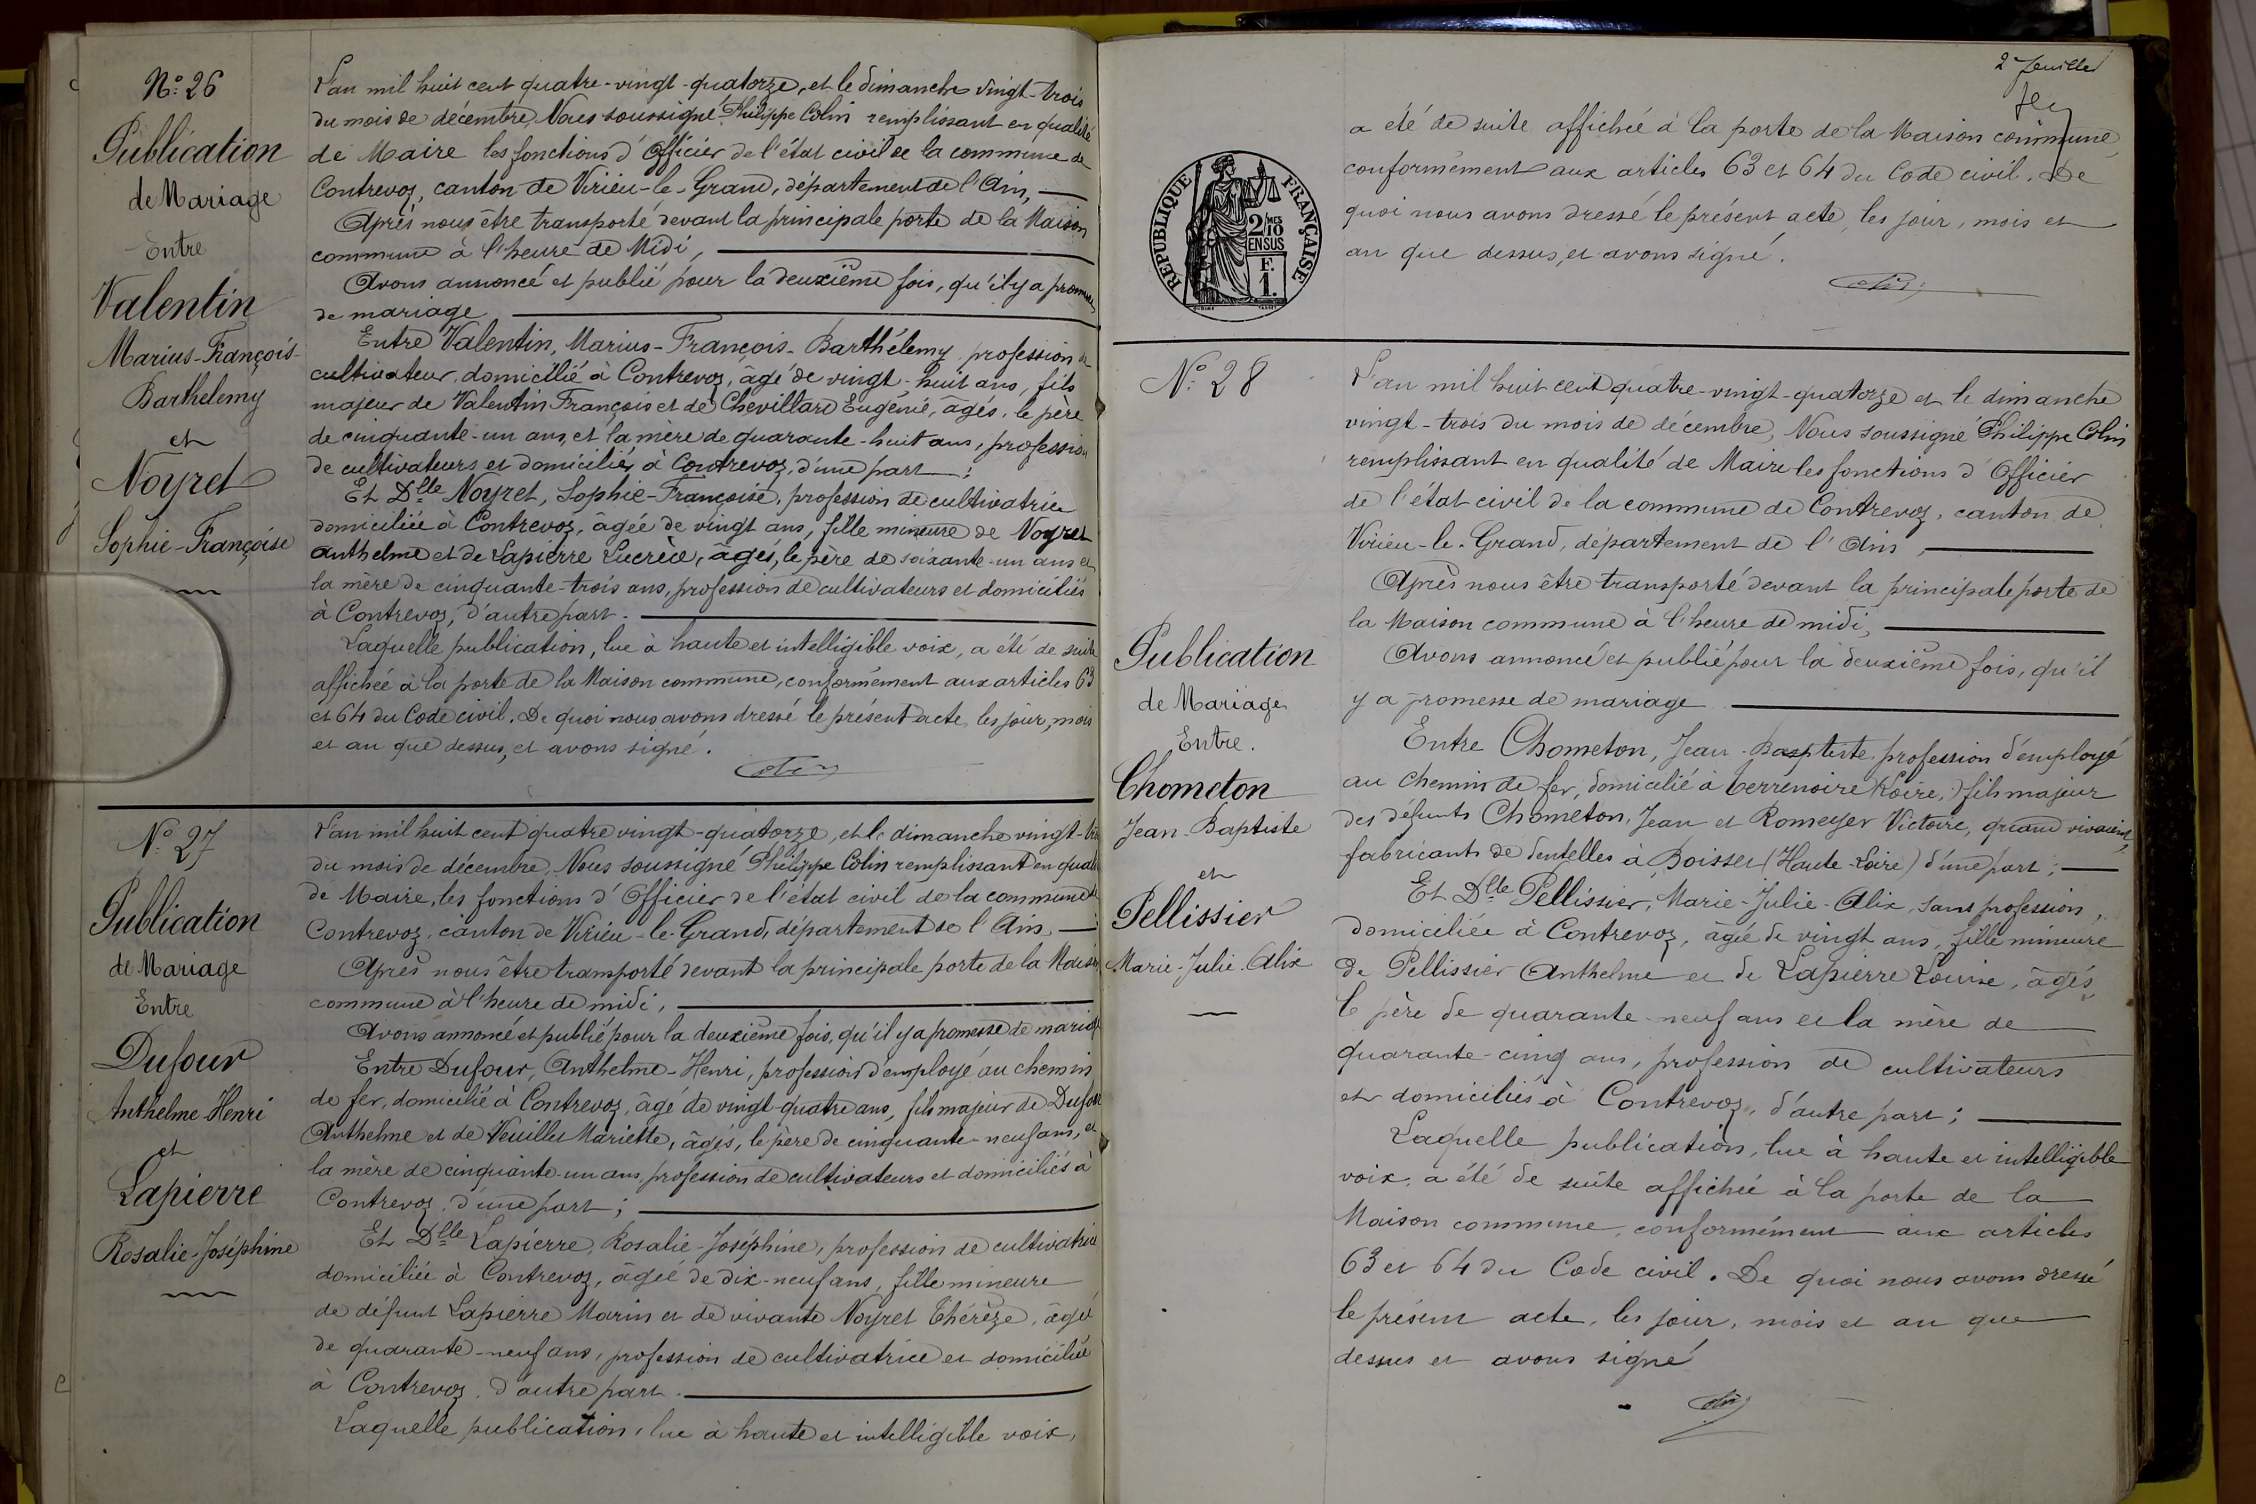 N° 26
Publication
de Mariage
Entre
Valentin
Marius-François-
Barthelemy
et
Noyret
Sophie-Françoise
L'an mil huit cent quatre-vingt-quatorze, et le dimanche vingt-trois
du mois de décembre, Nous soussigné Philippe Colin remplissant en qualité
de Maire les fonctions d'Officier de l'état civil de la commune de
Contrevoz, canton de Virieu-le-Grand, département de l'Ain,
Après nous être transporté devant la principale porte de la Maison
commune à l'heure de Midi,
Avons annoncé et publié pour la deuxième fois, qu'il y a promesse
de mariage
Entre Valentin, Marius-François-Barthélemy profession de
cultivateur, domicilié à Contrevoz, âgé de vingt-huit ans, fils
majeur de Valentin François et de Chevillard Eugénie, âgés, le père
de cinquante-un ans, et la mère de quarante-huit ans, profession
de cultivateurs et domiciliés à Contrevoz, d'une part;
Et Dlle Noyret, Sophie-Françoise, profession de cultivatrice
domiciliée à Contrevoz, âgée de vingt ans, fille mineure de Noyret
Anthelme et de Lapierre Lucrèce, âgés, le père de soixante-un ans et
la mère de cinquante-trois ans, profession de cultivateurs et domiciliés
à Contrevoz, d'autre part.
Laquelle publication, lue à haute et intelligible voix, a été de suite
affichée à la porte de la Maison commune, conformément aux articles 63
et 64 du Code civil. De quoi nous avons dressé le présent acte, les jour, mois
et an que dessus, et avons signé.
Colin
N° 27
Publication
de Mariage
Entre
Dufour
Anthelme-Henri
et
Lapierre
Rosalie-Joséphine
L'an mil huit cent quatre vingt-quatorze, et le dimanche vingt-trois
du mois de décembre, Nous soussigné Philippe Colin remplissant en qualité
de Maire, les fonctions d'Officier de l'état civil de la commune de
Contrevoz, canton de Virieu-le-Grand, département de l'Ain,
Après nous être transporté devant la principale porte de la Maison
commune à l'heure de midi,
Avons annoncé et publié pour la deuxième fois, qu'il y a promesse de mariage
Entre Dufour, Anthelme-Henri, profession d'employé au chemin
de fer, domicilié à Contrevoz, âgé de vingt-quatre ans, fils majeur de Dufour
Anthelme et de Veuillet Mariette, âgés, le père de cinquante-neuf ans, et
la mère de cinquante-un ans, profession de cultivateurs et domiciliés à
Contrevoz, d'une part;
Et Dlle Lapierre, Rosalie-Joséphine, profession de cultivatrice
domiciliée à Contrevoz, âgée de dix-neuf ans, fille mineure
de défunt Lapierre Marin et de vivante Noyret Thérèze, âgée
de quarante-neuf ans, profession de cultivatrice et domiciliée
à Contrevoz, d'autre part.
Laquelle publication, lue à haute et intelligible voix,
2e feuillet
a été de suite affichée à la porte de la Maison commune,
conformément aux articles 63 et 64 du Code civil. De
quoi nous avons dressé le présent acte, les jour, mois et
an que dessus, et avons signé.
Colin
RÉPUBLIQUE FRANÇAISE
2/10 MES
EN SUS
F.
1.
N° 28
Publication
de Mariage
Entre.
Chometon
Jean-Baptiste
et
Pellissier
Marie-Julie-Alix
L'an mil huit cent quatre-vingt-quatorze et le dimanche
vingt-trois du mois de décembre, Nous soussigné Philippe Colin
remplissant en qualité de Maire les fonctions d'Officier
de l'état civil de la commune de Contrevoz, canton de
Virieu-le-Grand, département de l'Ain,
Après nous être transporté devant la principale porte de
la Maison commune à l'heure de midi,
Avons annoncé et publié pour la deuxième fois, qu'il
y a promesse de mariage
Entre Chometon, Jean-Baptiste, profession d'employé
au chemin de fer, domicilié à Terrenoire (Loire,) fils majeur
des défunts Chometon, Jean et Romeyer Victoire, quand vivaient,
fabricants de dentelles à Boisset (Haute-Loire) d'une part;
Et Dlle Pellissier, Marie-Julie-Alix, sans profession,
domiciliée à Contrevoz, âgée de vingt ans, fille mineure
de Pellissier Anthelme et de Lapierre Louise, âgés,
le père de quarante-neuf ans et la mère de
quarante-cinq ans, profession de cultivateurs
et domiciliés à Contrevoz, d'autre part;
Laquelle publication, lue à haute et intelligible
voix, a été de suite affichée à la porte de la
Maison commune, conformément aux articles
63 et 64 du Code civil. De quoi nous avons dressé
le présent acte, les jour, mois et an que
dessus et avons signé
Colin